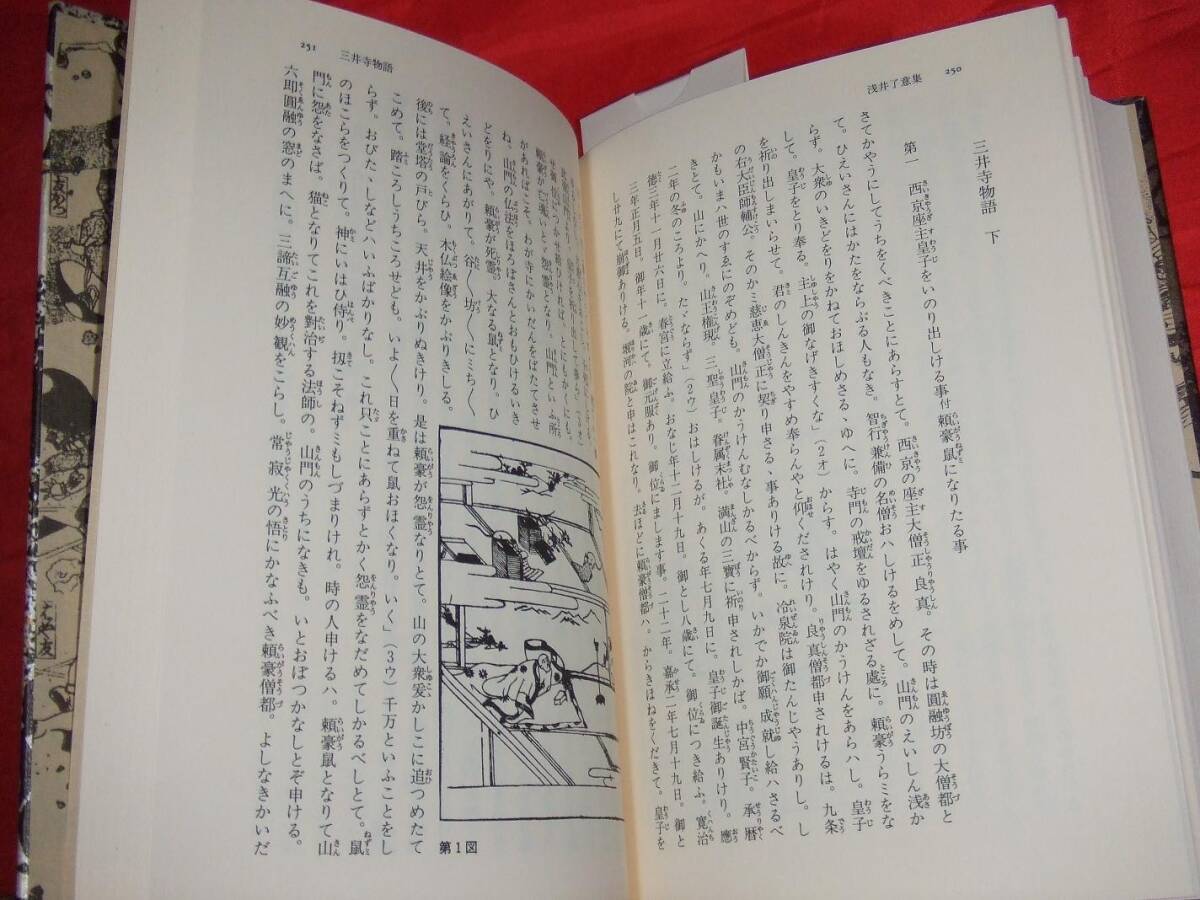 浅井了意集
250
三井寺物語 下
第一 西京座主皇子をいのり出しける事付頼豪鼠になりたる事
さてかやうにしてうちをくべきことにあらすとて。西京の座主大僧正良真。その時は圓融坊の大僧都と
て。ひえいさんにはかたをならぶる人もなき。智行兼備の名僧おハしけるをめして。山門のえいしん浅か
らず。大衆のいきどをりをかねておほしめさるゝゆへに。寺門の戒壇をゆるされざる處に。頼豪うらミをな
して。皇子をとり奉る。主上の御なげきすくな」(2オ)からす。はやく山門のかうけんをあらハし。皇子
を祈り出しまいらせて。君のしんきんをやすめ奉らんやと仰くだされけり。良真僧都申されけるは。九条
の右大臣師輔公。そのかミ慈恵大僧正に契り申さるゝ事ありける故に。冷泉院は御たんじやうありし。し
かもいまハ世のすゑにのぞめども。山門のかうけんむなしかるべからず。いかでか御願成就し給ハさるべ
きとて。山にかへり。山王権現。三聖皇子。眷属末社。満山の三寶に祈申されしかば。中宮賢子。承暦
二年の冬のころより。たゞならず」(2ウ)おはしけるが。あくる年七月九日に。皇子御誕生ありけり。應
徳三年十一月廿六日に。春宮に立給ふ。おなじ年十二月十九日。御とし八歳にて。御位につき給ふ。寛治
三年正月五日。御年十一歳にて。御元服あり。御位にまします事。二十二年。嘉承二年七月十九日。御と
し廿九にて崩御ありける。堀河の院と申はこれなり。去ほどに頼豪僧都ハ。からきほねをくだきて。皇子を
251
三井寺物語
があればこそ。わが寺にかいだんをばたてさせ
ね。山門の仏法をほろぼさんとおもひけるいき
どをりにや。頼豪が死霊。大なる鼠となり。ひ
えいさんにあがりて。谷〱坊〱にミち〱
て。経論をくらひ。木仏絵像をかぶりきしる。
後には堂塔の戸びら。天井をかぶりぬきけり。是は頼豪が怨霊なりとて。山の大衆爰かしこに追つめたて
こめて。踏ころしうちころせども。いよ〱日を重ねて鼠おほくなり。いく」(3ウ)千万といふことをし
らず。おびたゝしなどハいふばかりなし。これ只ことにあらずとかく怨霊をなだめてしかるべしとて。鼠
のほこらをつくりて。神にいはひ侍り。扨こそねずミもしづまりけれ。時の人申けるハ。頼豪鼠となりて山
門に怨をなさば。猫となりてこれを對治する法師の。山門のうちになきも。いとおぼつかなしとぞ申ける。
六即圓融の窓のまへに。三諦互融の妙観をこらし。常寂光の悟にかなふべき頼豪僧都。よしなきかいだ
第1図